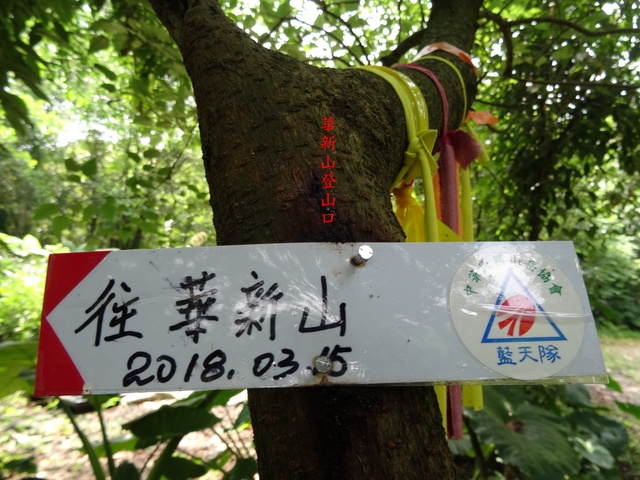 華新山登山口
往華新山
2018.03.15
協會
藍天隊